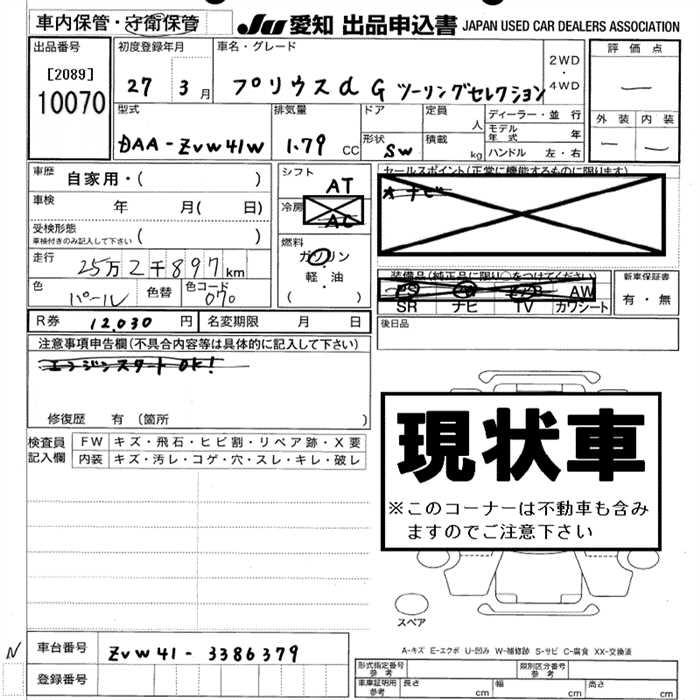 車内保管・守衛保管
JU 愛知 出品申込書 JAPAN USED CAR DEALERS ASSOCIATION
出品番号
[2089]
10070
初度登録年月
27 3月
車名・グレード
プリウスα G ツーリングセレクション
2WD
・
4WD
評価点
—
外装 内装
— —
型式
DAA-ZVW41W
排気量
1.79 CC
ドア
形状
SW
定員
人
積載
kg
ディーラー・並行
モデル年式 年
ハンドル 左・右
車歴 自家用・( )
車検 年 月( 日)
受検形態
車検付きのみ記入して下さい ( )
走行 25万2千897km
色 パール 色替 色コード 070
シフト
AT
冷房
AC
燃料
ガソリン
・
軽油
( )
セールスポイント(正常に機能するものに限ります)
★ナビ
装備品(純正品に限り○をつけてください)
PS PW エアB AW
SR ナビ TV カワシート
新車保証書
有・無
R券 12,030 円 名変期限 月 日
後日品
注意事項申告欄(不具合内容等は具体的に記入して下さい)
エンジンスタートOK!
修復歴 有 (箇所 )
検査員
記入欄
FW キズ・飛石・ヒビ割・リペア跡・X要
内装 キズ・汚レ・コゲ・穴・スレ・キレ・破レ
現状車
※このコーナーは不動車も含み
ますのでご注意下さい
スペア
N
車台番号 ZVW41-3386379
登録番号
A-キズ E-エクボ U-凹み W-補修跡 S-サビ C-腐食 XX-交換済
形式指定番号
参考
類別区分番号
参考
車庫証明用
参考
長さ cm 幅 cm 高さ cm